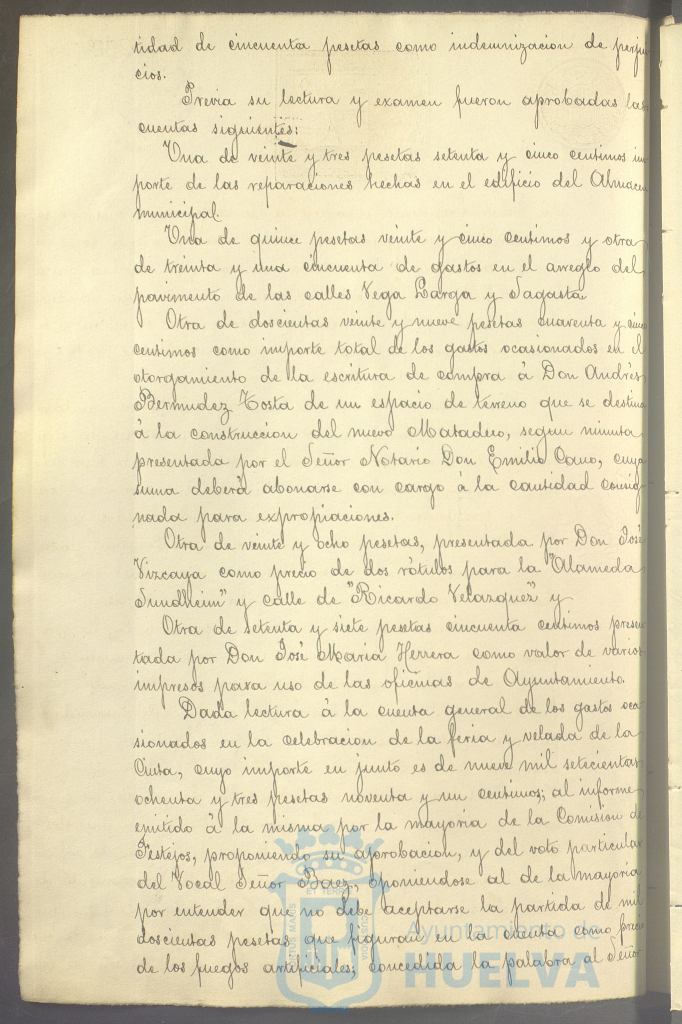 tidad de cincuenta pesetas como indemnizacion de perjui
cios.
Previa su lectura y examen fueron aprobadas las
cuentas siguientes:
Una de veinte y tres pesetas setenta y cinco centimos im
porte de las reparaciones hechas en el edificio del Almacen
municipal.
Una de quince pesetas veinte y cinco centimos y otra
de treinta y una cincuenta de gastos en el arreglo del
pavimento de las calles Vega Larga y Sagasta.
Otra de doscientas veinte y nueve pesetas cuarenta y cinco
centimos como importe total de los gastos ocasionados en el
otorgamiento de la escritura de compra á Don Andrés
Bermudez Tosta de un espacio de terreno que se destina
á la construccion del nuevo Matadero, segun minuta
presentada por el Señor Notario Don Emilio Cano, cuya
suma deberá abonarse con cargo á la cantidad consig
nada para expropiaciones.
Otra de veinte y ocho pesetas, presentada por Don José
Vizcaya como precio de dos rótulos para la "Alameda
Sundheim" y calle de "Ricardo Velazquez" y
Otra de setenta y siete pesetas cincuenta centimos presen
tada por Don José Maria Herrera como valor de varios
impresos para uso de las oficinas de Ayuntamiento.
Dada lectura á la cuenta general de los gastos oca
sionados en la celebracion de la feria y velada de la
Cinta, cuyo importe en junto es de nueve mil setecientas
ochenta y tres pesetas noventa y un centimos; al informe
emitido á la misma por la mayoria de la Comision de
Festejos, proponiendo su aprobacion, y del voto particular
del Vocal Señor Baez, oponiendose al de la mayoria
por entender que no debe aceptarse la partida de mil
doscientas pesetas que figuran en la cuenta como precio
de los fuegos artificiales; concedida la palabra al Señor
Ayuntamiento de
HUELVA